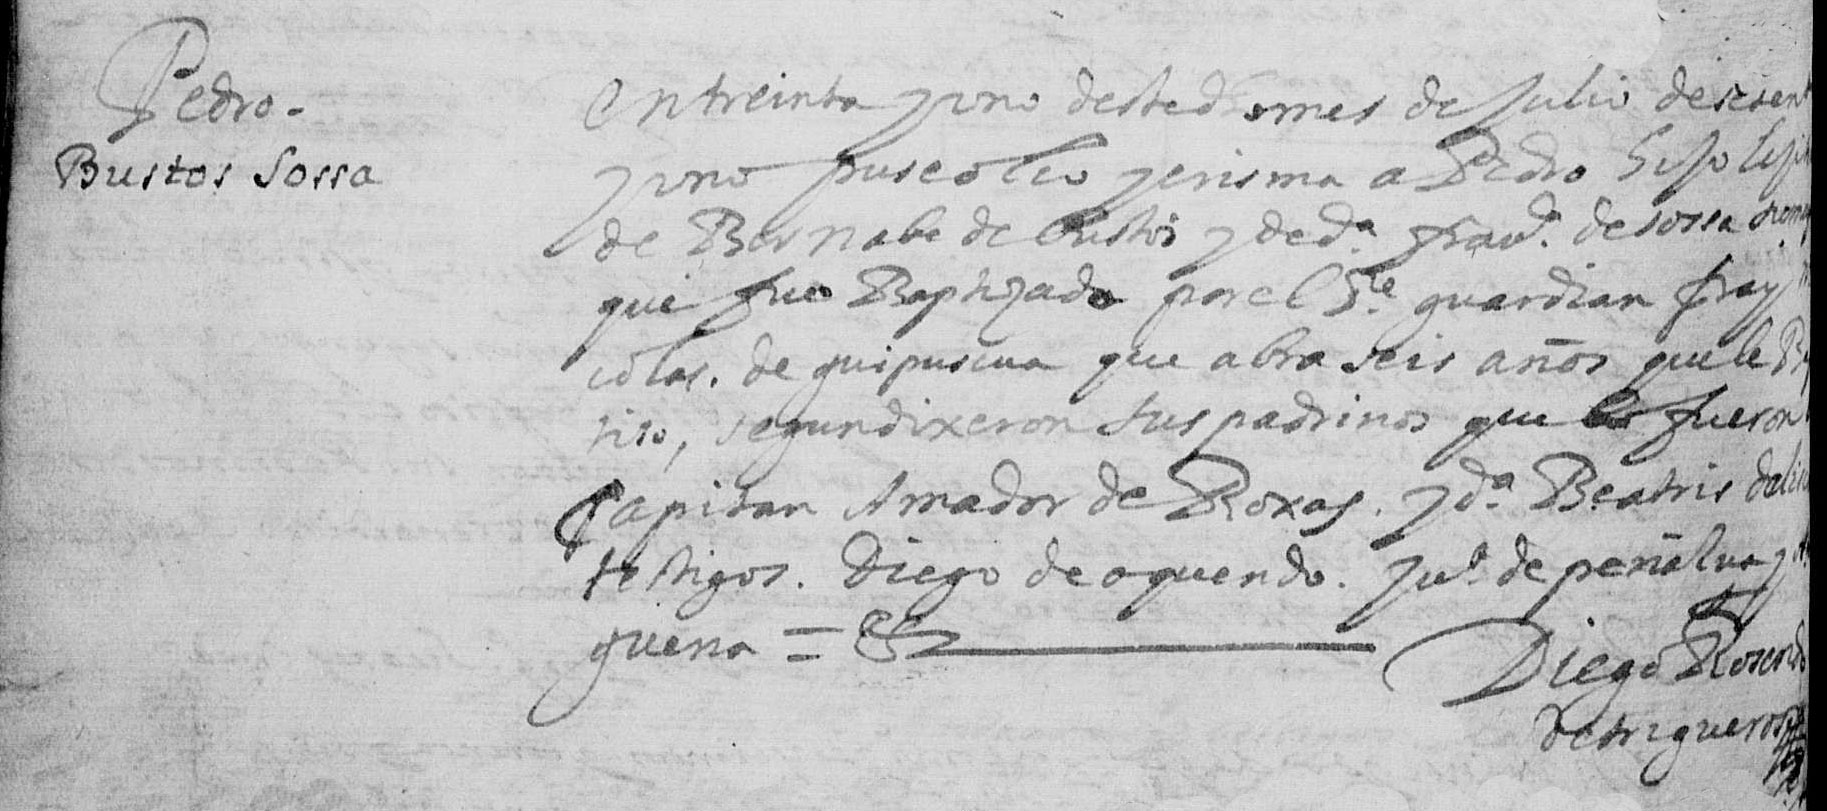 Pedro.
Bustos Sossa
En treinta y uno deste d mes de Julio de sesent
y uno puse olio y crisma a Pedro hijo lejit
de Bernabe de bustos y de d.ª fran.ca de sossa
que fue Baptizado por el P.e guardian fray
colas. de guipuscua que abra seis años que le Bap
tiso, segun dixeron sus padrinos que lo fueron
Capitan Amador de Roxas. y d.ª Beatris
testigos. Diego de oquendo. Ju.o de peñalva y
guena = &
Diego Rosendo
de trigueros